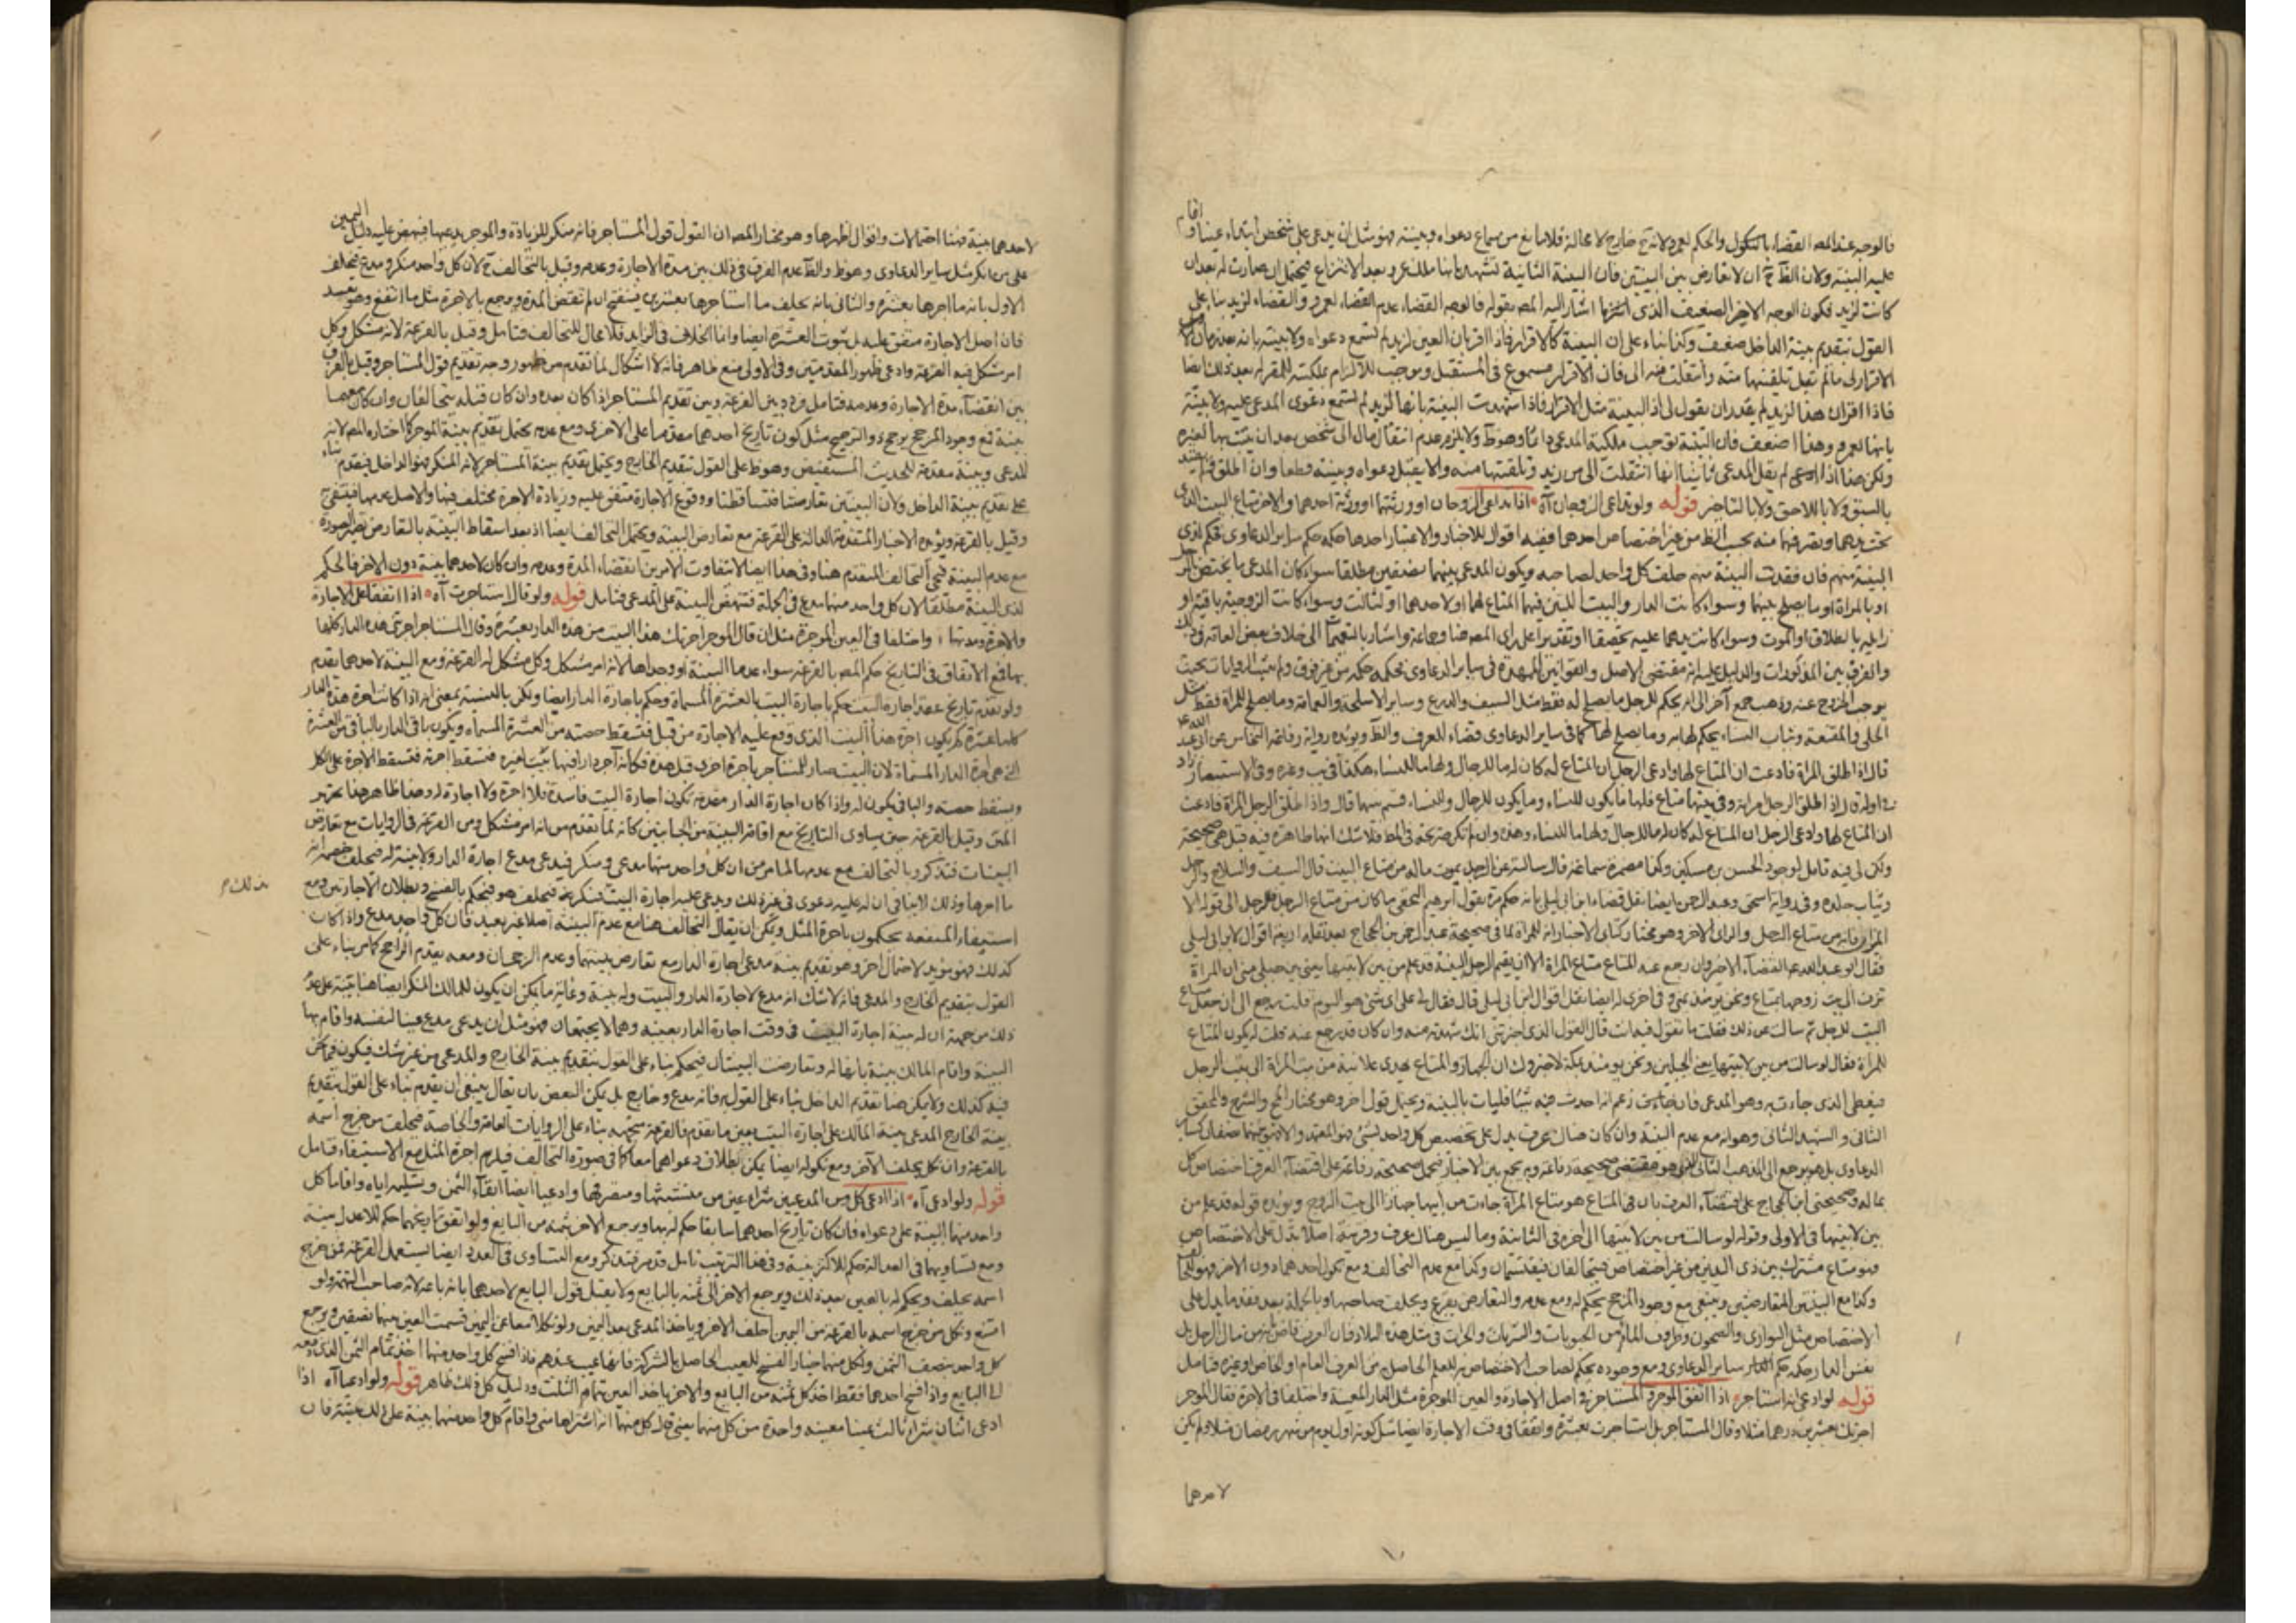 فالوجه عند المصـ القضاء بالنكول والحكم لعمرو لانه ح خارج لا محالة فلا مانع من سماع دعواه وبينته فهو مثل ان يدعي على شخص ابتداء عينا واقام
عليه البينة ولان الظ ح ان لا تعارض بين البينتين فان البينة الثانية تشهد بانها ملك عمرو بعد الانتزاع فيحتمل ان صارت له بعد ان
كانت لزيد فيكون الوجه الاخير الضعيف الذي اشار اليه المصـ بقوله فالوجه القضاء عدم القضاء لعمرو والقضاء لزيد بناء على
القول بتقديم بينة الداخل ضعيف وكذا بناء على ان البينة كالاقرار فاذا اقر بان العين لزيد لم تسمع دعواه ولا بينته بانه بعد زمان
الاقرار لي ما لم يقل تلقيتها منه وانتقلت منه الي فان الاقرار مسموع في المستقبل وموجب للالزام بملكية المقر له بعد ذلك ايضا
فاذا اقر ان هذا لزيد لم يقدر ان يقول لي اذ البينة مثل الاقرار فاذا شهدت البينة بانها لزيد لم تسمع دعوى المدعى عليه ولا بينته
بانها لعمرو وهذا اضعف فان البينة توجب ملكية المدعي دائما وهو ظ ولا يلزم عدم انتقال مال الى شخص بعد ان يثبت بها لغيره
ولكن هذا اذا لم يقل المدعي ثانيا انها انتقلت الي من زيد وتلقيتها منه والا يقبل دعواه وبينته قطعا وان اطلق
بالسبق ولا باللاحق ولا بالتاخر قوله ولو تداعى الزوجان آه اذا تداعى الزوجان او ورثتهما او ورثة احدهما والاخر متاع البيت الذي
تحت يدهما وتصرفهما فيه بحسب الظ من غير اختصاص احدهما ففيه اقوال للاخبار والاعتبار احدها حكمه حكم ساير الدعاوى فيحكم لذي
البينة منهم فان فقدت البينة منهم حلف كل واحد لصاحبه ويكون المدعى بينهما نصفين مطلقا سواء كان المدعى ما يختص بالرجل
او بالمراة او ما يصلح بينهما وسواء كانت الدار والبيت الذين فيهما المتاع لهما او لاحدهما او لثالث وسواء كانت الزوجية باقية او
زايله بالطلاق او الموت وسواء كانت يدهما عليه تحقيقا او تقديرا على راي المصـ هنا وجماعة واشار بالتعميم الى خلاف بعض العامة في ذلك
والفرق بين المذكورات والدليل عليه انه مقتضى الاصل والقوانين الممهدة في ساير الدعاوى فحكمه حكمه من غير فرق ولم يثبت الروايات بحيث
يوجب الخروج عنه وذهب جمع آخر الى انه يحكم للرجل ما يصلح له فقط مثل السيف والدرع وساير الاسلحة والعمامة وما يصلح للمراة فقط مثل
الحلي والمقنعة وثياب النساء يحكم لها به وما يصلح لهما كما في ساير الدعاوى قضاء للعرف والظ ويؤيده رواية رفاعة النخاس عن ابي عبد الله ع
قال اذا طلق المراة فادعت ان المتاع لها وادعى الرجل ان المتاع له كان له ما للرجال ولها ما للنساء هكذا في يب وغيره وفي الاستبصار زاد
في اوله قال اذا طلق الرجل امراته وفي بيتها متاع فلها ما يكون للنساء وما يكون للرجال والنساء قسم بينهما قال واذا طلق الرجل المراة فادعت
ان المتاع لها وادعى الرجل ان المتاع له كان له ما للرجال ولها ما للنساء وهذه وان لم تكن صريحة في المط فلا شك انها ظاهرة فيه قيل هي صحيحة
ولكن لي فيه تامل لوجود الحسن بن مسكين وكذا مضمرة سماعة قال سالته عن الرجل يموت ما له من متاع البيت قال السيف والسلاح والرحل
وثياب جلده وفي رواية اسحق وعبد الرحمن ايضا نقل قضاء ابن ابي ليلى بانه حكم مرة بقول ابرهيم النخعي ما كان من متاع الرجل فللرجل الى قوله الا
الميزان فانه من متاع الرجل والراي الاخر وهو مختار كتابي الاخبار انه للمراة لما في صحيحة عبد الرحمن بن الحجاج بعد نقله اربعة اقوال لابن ابي ليلى
فقال ابو عبد الله ع القضاء الاخير وان رجع عنه المتاع متاع المراة الا ان يقيم الرجل البينة قد علم من بين لابتيها يعني بين جبلي منى ان المراة
تزف الى بيت زوجها بمتاع ونحن يومئذ بمنى وفي اخرى له ايضا نقل اقوال ابن ابي ليلى قال فقال لي على اي شي هو اليوم قلت رجع الى ان جعل متاع
البيت للرجل ثم سالته عن ذلك فقلت ما تقول فيه انت قال القول الذي اخبرتني انك شهدته منه وان كان قد رجع عنه قلت له يكون المتاع
للمراة فقال لو سالت من بين لابتيها يعني الجبلين ونحن يومئذ بمكة لاخبروك ان الجهاز والمتاع يهدى علانية من بيت المراة الى بيت الرجل
فيعطى الذي جاءت به وهو المدعي فان زعم انه احدث فيه شيئا فليات بالبينة ويحتمل قول اخر وهو مختار المخ والشرح والمحقق
الثاني والشهيد الثاني وهو انه مع عدم البينة وان كان هناك عرف يدل على تخصيص كل واحد بشي فهو المعتمد والا فهو بينهما نصفان كساير
الدعاوى بل هو يرجع الى المذهب الثاني الذي هو مقتضى صحيحة رفاعة وبه يجمع بين الاخبار فيحمل صحيحة رفاعة على اقتضاء العرف اختصاص كل
بماله وصحيحتي ابن الحجاج على اقتضاء العرف بان في المتاع هو متاع المراة جاءت من ابيها جهازا الى بيت الزوج ويؤيده قوله قد علم من
بين لابتيها في الاولى وقوله لو سالت من بين لابتيها الى اخره في الثانية وما ليس هناك عرف وقرينة اصلا تدل على الاختصاص
فهو متاع مشترك بين ذي اليدين من غير اختصاص فيتحالفان فيقتسمان وكذا مع عدم التحالف ومع نكول احدهما دون الاخر فهو للحالف
وكذا مع البينتين المتعارضتين وينبغي مع وجود المرجح يحكم له ومع عدمه والتعارض يقرع ويحلف صاحبها وبالجملة بعد فقد ما يدل على
الاختصاص مثل البواري والصحون وظروف الماء من الحبوبات والشربات والخزات في مثل هذه البلاد فان العرف قاض بانه من مال الرجل بل
نفس الدار حكمه حكم ساير الدعاوى ومع وجوده يحكم لصاحب الاختصاص للعلم الحاصل من العرف العام او الخاص او غيره فتامل
قوله لو ادعى انه استاجر اذا اتفق الموجر والمستاجر في اصل الاجارة والعين الموجرة مثل الدار المعينة واختلفا في الاجرة فقال الموجر
اجرتك بعشرين درهما مثلا وقال المستاجر بل استاجرت بعشرة واتفقا في وقت الاجارة ايضا مثل كونه اول يوم من شهر رمضان مثلا ولم يكن
لاحدهما
لاحدهما بينة فهنا احتمالات واقوال اظهرها وهو مختار المصـ ان القول قول المستاجر فانه منكر للزيادة والموجر يدعيها فينهض عليه دليل اليمين
على من انكر مثل ساير الدعاوى وهو ظ والظ عدم الفرق في ذلك بين مدة الاجارة وعدمه وقيل بالتحالف ح لان كل واحد منكر ومدع فيحلف
الاول بانه ما اجرها بعشرة والثاني بانه يحلف ما استاجرها بعشرين فينفسخ ان لم تنقض المدة ويرجع بالاجرة مثل ما انتفع وهو بعيد
فان اصل الاجارة متفق عليه بل ثبوت العشرة ايضا وانما الخلاف في الزايد فلا مجال للتحالف فتامل وقيل بالقرعة لانه مشكل وكل
امر مشكل فيه القرعة وادعى ظهور المقدمتين وفي الاولى منع ظاهر فانه لا اشكال لما تقدم من ظهور وجه تقديم قول المستاجر وقيل بالفرق
بين انقضاء مدة الاجارة وعدمه فتامل فردد بين القرعة وبين تقديم المستاجر اذا كان بعده وان كان قبله يتحالفان وان كان معهما
بينة فمع وجود المرجح يرجح ذو الترجيح مثل كون تاريخ احدهما مقدما على الاخرى ومع عدمه يحتمل تقديم بينة الموجر كما اختاره المصـ لانه
المدعي وبينته مقدمة للحديث المستفيض وهو ظ على القول بتقديم الخارج ويحتمل تقديم بينة المستاجر لانه المنكر فهو الداخل فيقدم بناء
على تقديم بينة الداخل ولان البينتين تعارضتا فتساقطتا ووقوع الاجارة متفق عليه وزيادة الاجرة مختلف فيها والاصل عدمها فينتفي
وقيل بالقرعة ويؤيده الاخبار المتقدمة الدالة على القرعة مع تعارض البينة ويحتمل التحالف ايضا اذ بعد اسقاط البينة بالتعارض تصير الصورة
مع عدم البينة فيجي التحالف المتقدم هنا وفي هذا ايضا لا تتفاوت الامر بين انقضاء المدة وعدمه وان كان لاحدهما بينة دون الاخر فالحكم
لذي البينة مطلقا لان كل واحد منهما مدع في الجملة فتنهض البينة على المدعي فتامل قوله ولو قال استاجرت آه اذا اتفقا على الاجارة
والاجرة ومدتها واختلفا في العين الموجرة مثل ان قال الموجر اجرتك هذا البيت من هذه الدار بعشرة وقال المستاجر اجرتني هذه الدار كلها
بها فمع الاتفاق في التاريخ حكم المصـ بالقرعة سواء عدما البينة او وجداها لانه امر مشكل وكل مشكل له القرعة ومع البينة لاحدهما يقدم
ولو تقدم تاريخ عقد اجارة البيت حكم باجارة البيت بالعشرة المسماة وحكم باجارة الدار ايضا ولكن بالنسبة بمعنى انه اذا كانت اجرة هذه الدار
كلها عشرة كم يكون اجرة هذا البيت الذي وقع عليه الاجارة من قبل فتسقط حصته من العشرة المسماة ويكون باقي الدار بالباقي من العشرة
التي هي اجرة الدار المسماة لان البيت صار للمستاجر باجرة اخرى قبل هذه فكانه آجر دارا فيها بيت لغيره فتسقط اجرته فتسقط الاجرة على الكل
ويسقط حصته والباقي يكون له واذا كان اجارة الدار مقدمة تكون اجارة البيت فاسدة فلا اجرة ولا اجارة له وهذا ظاهر هذا تحرير
المتن وقيل بالقرعة حين تساوى التاريخ مع اقامة البينة من الجانبين كانه لما تقدم من انه امر مشكل ومن القرعة في الروايات مع تعارض
البينات فتذكر وبالتحالف مع عدمها لما مر من ان كل واحد منهما مدعي ومنكر فيدعي مدع اجارة الدار ولا بينة له فيحلف خصمه انه
ما اجرها وذلك لا ينافي ان له عليه دعوى في غير ذلك ويدعي عليه اجارة البيت فينكره فيحلف هو فيحكم بالفسخ وبطلان الاجارتين ومع
بذلك م
استيفاء المنفعة يحكمون باجرة المثل ويمكن ان يقال التحالف هنا مع عدم البينة اصلا غير بعيد فان كل واحد مدع واذا كان
كذلك فهو مؤيد لاحتمال اخر وهو تقديم بينة مدعي اجارة الدار مع تعارض بينتهما وعدم الرجحان ومعه يقدم الراجح كما مر بناء على
القول بتقديم الخارج والمدعي فانه لا شك انه مدع لاجارة الدار والبيت وله بينة وغاية ما يمكن ان يكون للمالك المنكر ايضا هنا بينة على عدم
ذلك من جهة ان له بينة اجارة البيت في وقت اجارة الدار بعينه وهما لا يجتمعان فهو مثل ان يدعي مدع عينا لنفسه واقام بها
البينة واقام المالك بينة بانها له وتعارضت البينتان فيحكم بناء على القول بتقديم بينة الخارج والمدعي من غير شك فيكون فيما نحن
فيه كذلك ولا يمكن هنا تقديم الداخل بناء على القول به فانه مدع وخارج بل يمكن البعض بان يقال ينبغي ان يقدم بناء على القول بتقديم
بينة الخارج المدعي بينة المالك على اجارة البيت بعين ما تقدم فالقرعة متجهة بناء على الروايات العامة والخاصة فيحلف من خرج اسمه
بالقرعة وان نكل يحلف الآخر ومع نكوله ايضا يمكن بطلان دعواهما معا كما في صورة التحالف فيلزم اجرة المثل مع الاستيفاء فتامل
قوله ولو ادعى آه اذا ادعى كل من المدعيين شراء عين من متشبثها ومتصرفها وادعيا ايضا ايفاء الثمن وتسليمه اياه واقاما كل
واحد منهما البينة على دعواه فان كان تاريخ احدهما سابقا حكم له بها ويرجع الاخر بثمنه من البايع ولو اتفق تاريخهما حكم للاعدل بينة
ومع تساويهما في العدالة حكم للاكثر بينة وفي هذا الترتيب تامل قد مر فتذكر ومع التساوي في العدد ايضا يستعمل القرعة فمن خرج
اسمه يحلف ويحكم له بالعين بعد ذلك ويرجع الاخر الى ثمنه بالبايع ولا يقبل قول البايع لاحدهما بانه باعه لانه صاحب التهمة ولو
امتنع ونكل من خرج اسمه بالقرعة من اليمين احلف الاخر وياخذ المدعى بعد اليمين ولو نكلا معا عن اليمين قسمت العين بينهما نصفين ويرجع
كل واحد بنصف الثمن ولكل منهما خيار الفسخ للعيب الحاصل بالشركة فانها عيب عندهم فاذا فسخ كل واحد منهما اخذ تمام الثمن الذي دفعه
الى البايع واذا فسخ احدهما فقط اخذ كل ثمنه من البايع والاخر ياخذ العين بتمام الثمن ودليل كل ذلك ظاهر قوله ولو ادعيا آه اذا
ادعى اثنان شراء ثالث عينا معينه واحدة من كل منهما يعني قال كل منهما انه اشتراها مني واقام كل واحد منهما بينة على ذلك بعينه فان